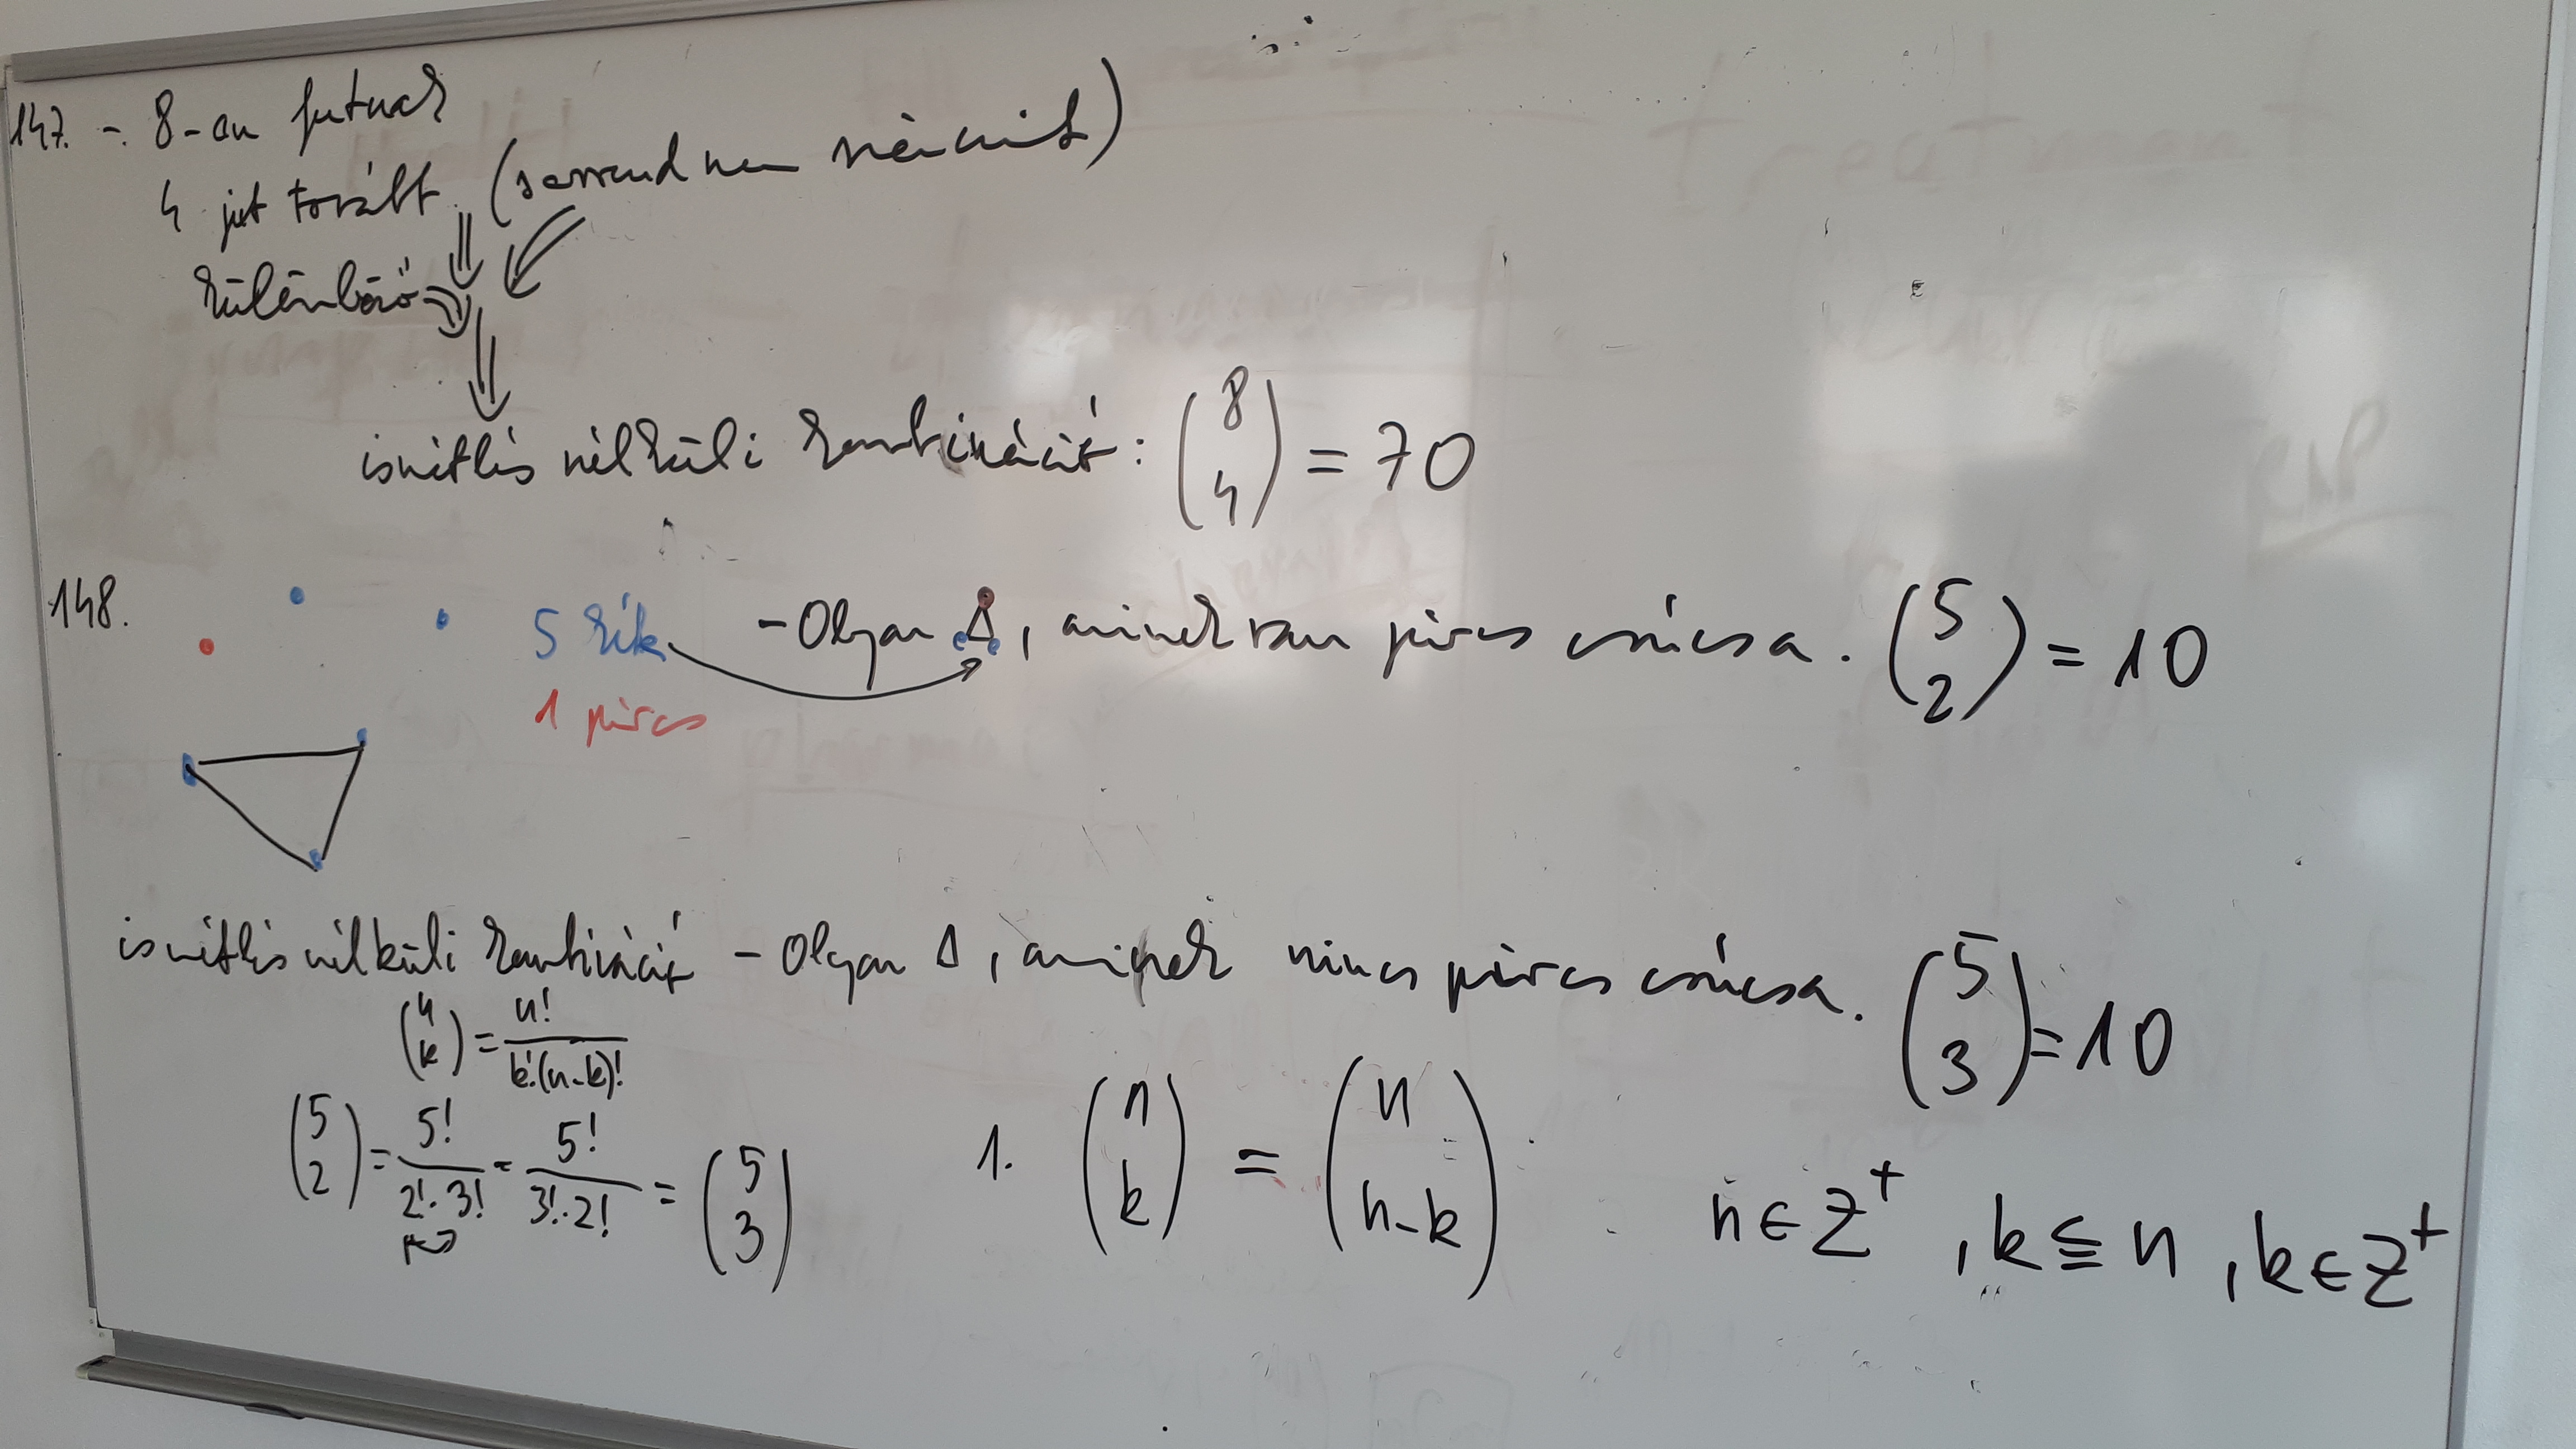 147. - 8-an futnak
4 jut tovább. (sorrend nem számít)
különböző
ismétlés nélküli kombináció: (8 4) = 70
148. 5 kék - Olyan Δ, aminek van piros csúcsa. (5 2) = 10
1 piros
ismétlés nélküli kombináció - Olyan Δ, aminek nincs piros csúcsa. (5 3) = 10
(n k) = n! / k!·(n-k)!
(5 2) = 5! / 2!·3! = 5! / 3!·2! = (5 3)
1. (n k) = (n n-k) n ∈ Z⁺, k ≦ n, k ∈ Z⁺